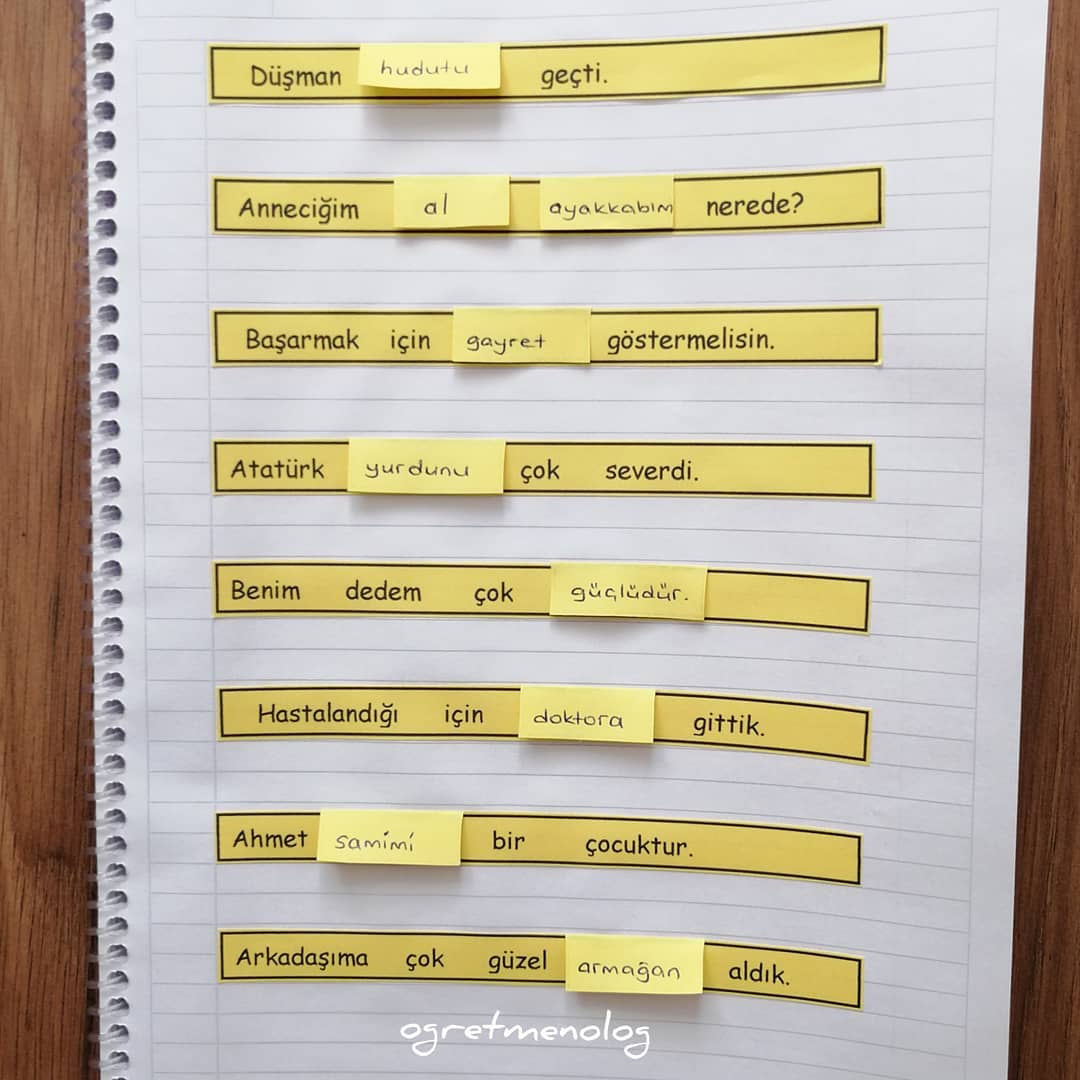 Düşman hudutu geçti.
Anneciğim al ayakkabım nerede?
Başarmak için gayret göstermelisin.
Atatürk yurdunu çok severdi.
Benim dedem çok güçlüdür.
Hastalandığı için doktora gittik.
Ahmet samimi bir çocuktur.
Arkadaşıma çok güzel armağan aldık.
ogretmenolog